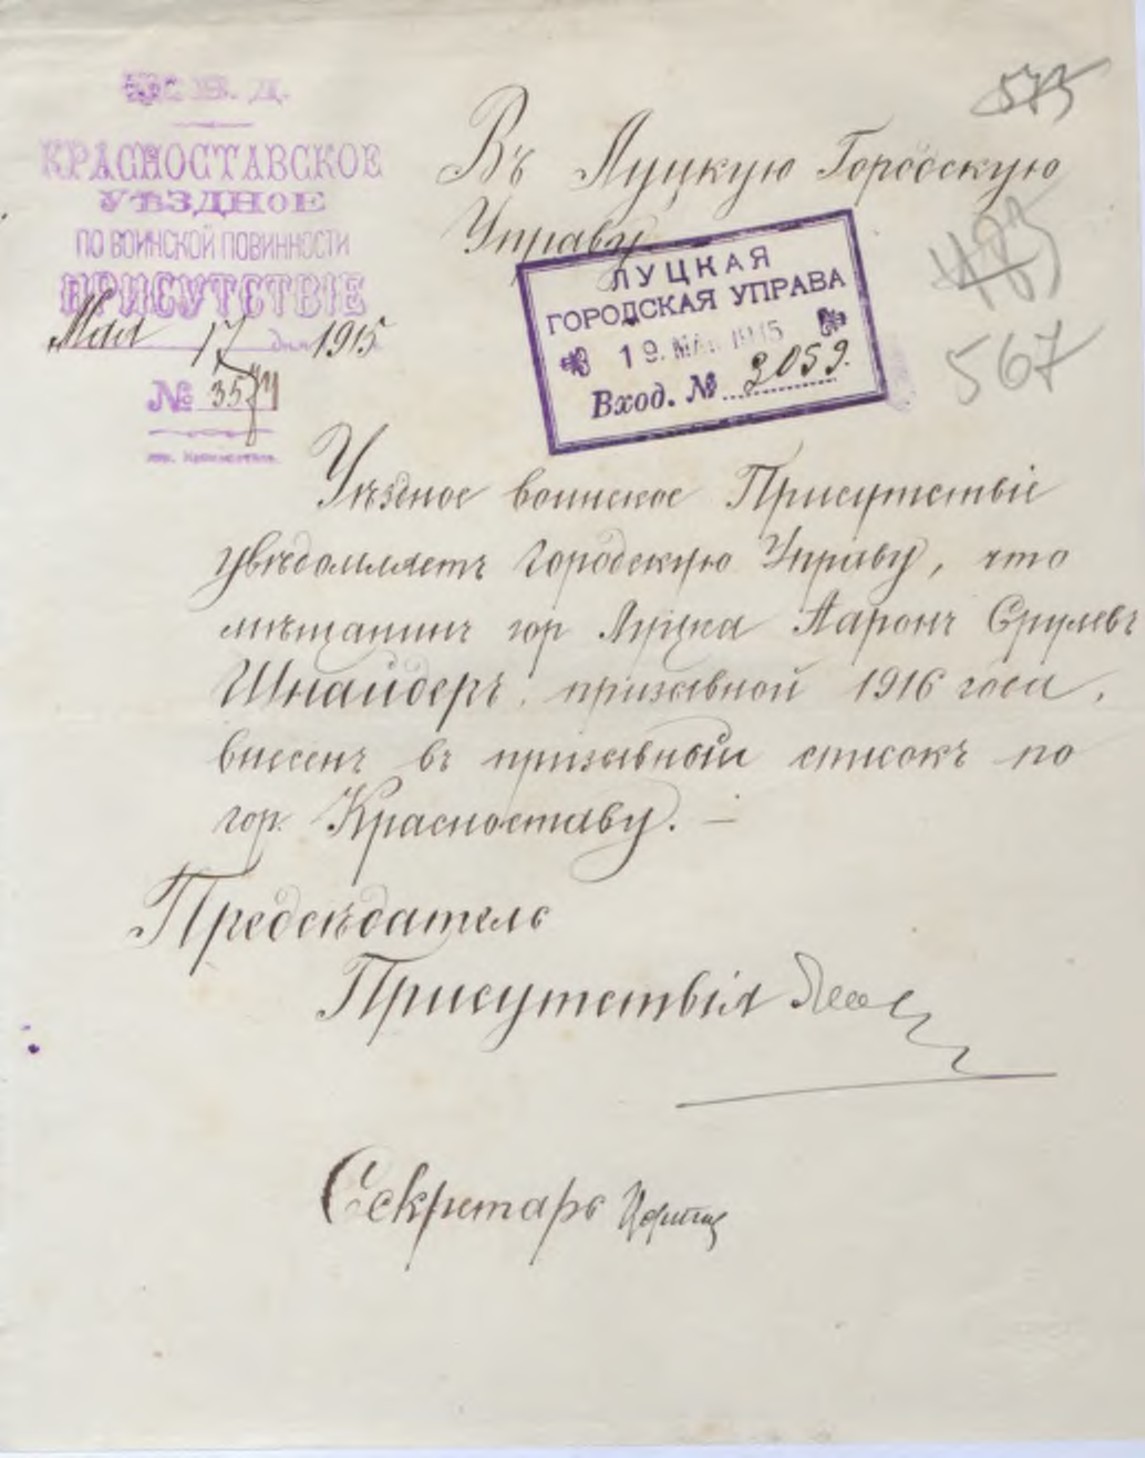 М. В. Д.
КРАСНОСТАВСКОЕ
УѢЗДНОЕ
ПО ВОИНСКОЙ ПОВИННОСТИ
ПРИСУТСТВІЕ
Мая 17 дня 1915
№ 3574
гор. Красноставъ.
575
Въ Луцкую Городскую
Управу
ЛУЦКАЯ
ГОРОДСКАЯ УПРАВА
19. МАЯ 1915
Вход. № 3059.
483
567
Уѣздное воинское Присутствіе
увѣдомляетъ Городскую Управу, что
мѣщанинъ гор Луцка Ааронъ Срулевъ
Шнайдеръ, призывной 1916 года,
внесенъ въ призывной списокъ по
гор. Красноставу. —
Предсѣдатель
Присутствія
Секретарь